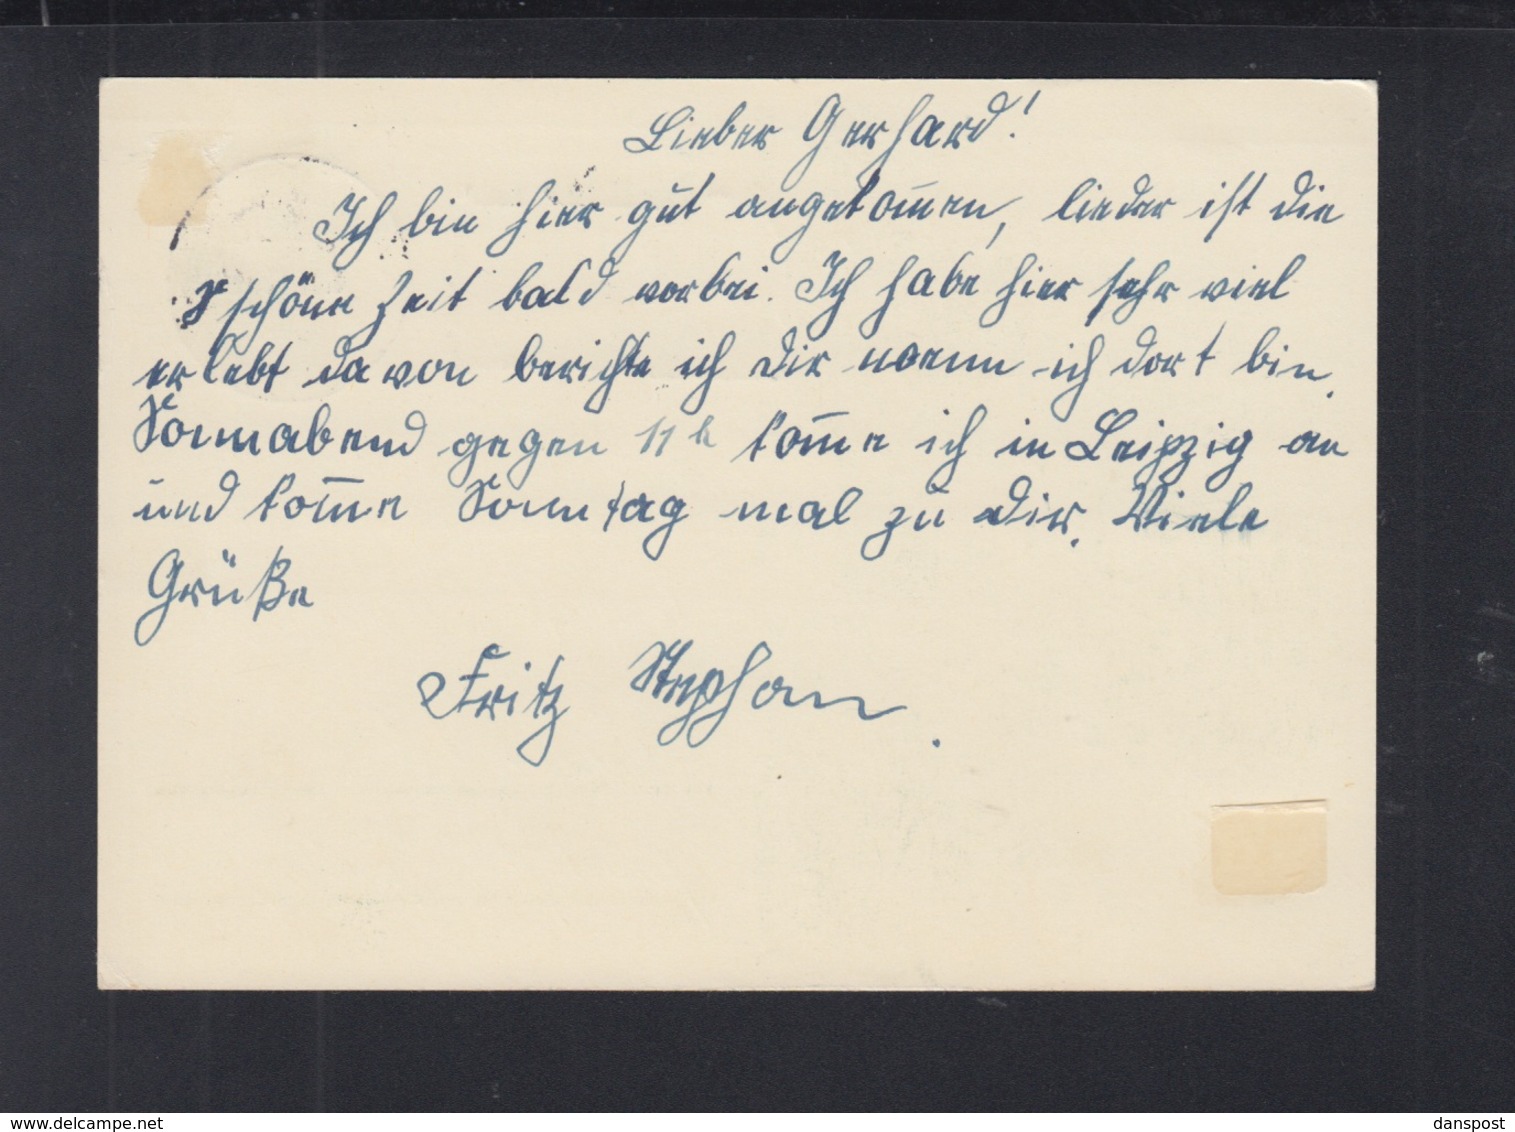 Lieber Gerhard!
Ich bin hier gut angekom̅en, lieder ist die
schöne Zeit bald vorbei. Ich habe hier sehr viel
erlebt davon berichte ich Dir wenn ich dort bin.
Sonnabend gegen 11 h kom̅e ich in Leipzig an
und kom̅e Sonntag mal zu Dir. Viele
Grüße
Fritz Stephan.
www.delcampe.net
danspost